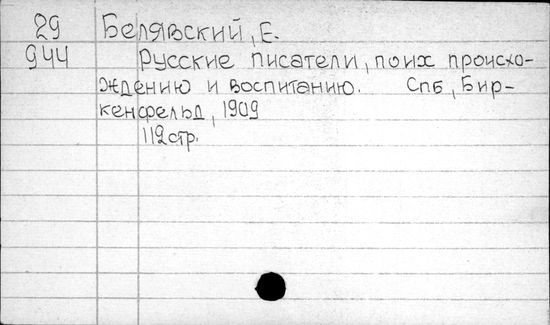 29 Белявский, Е.
944 Русские писатели, поих происхо-
ждению и воспитанию. Спб, Бир-
кенфельд, 1909
112стр.